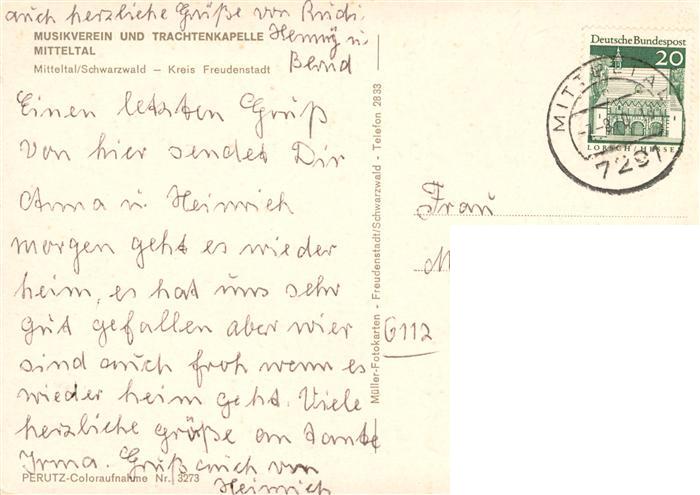 auch herzliche Grüße von Rudi.
MUSIKVEREIN UND TRACHTENKAPELLE
MITTELTAL
Mitteltal/Schwarzwald — Kreis Freudenstadt
Henny u.
Bernd
Einen letzten Gruß
von hier sendet Dir
Anna u. Heinrich
morgen geht es wieder
heim, es hat uns sehr
gut gefallen aber wier
sind auch froh wenn es
wieder heim geht. Viele
herzliche grüße an tante
Irma. Gruß auch von
Heinrich
PERUTZ-Coloraufnahme Nr. 3273
Müller-Fotokarten - Freudenstadt/Schwarzwald - Telefon 2833
Deutsche Bundespost
20
LORSCH/HESSEN
MITTELTAL
7291
Frau
M
G112